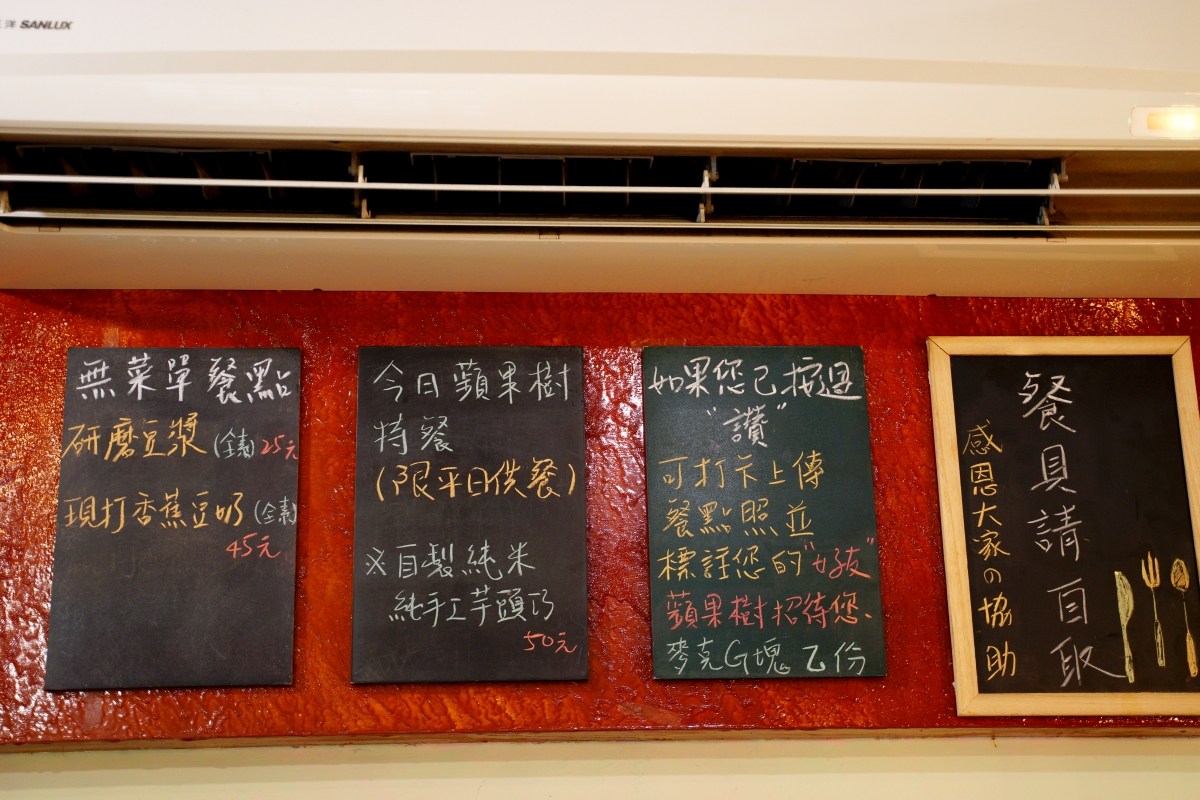 洋 SANLUX
無菜單餐點
研磨豆漿(全素)25元
現打香蕉豆奶(全素)
45元
今日蘋果樹
特餐
(限平日供餐)
※自製純米
純手工芋頭巧
50元
如果您已按過
"讚"
可打卡上傳
餐點照並
標註您的"好友"
蘋果樹招待您、
麥克G塊乙份
餐具請自取
感恩大家の協助